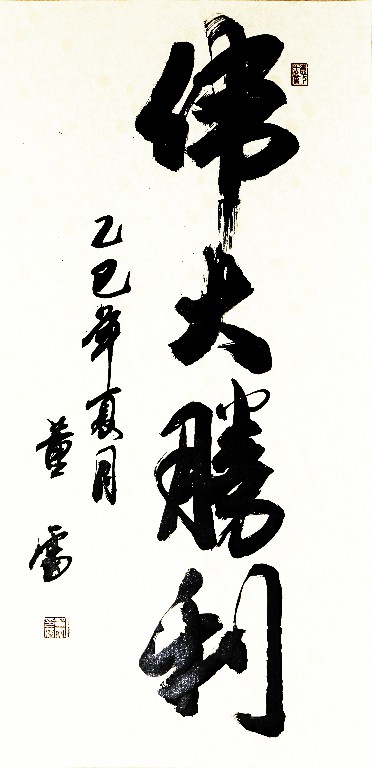 伟大勝利
乙巳年夏月
董雷